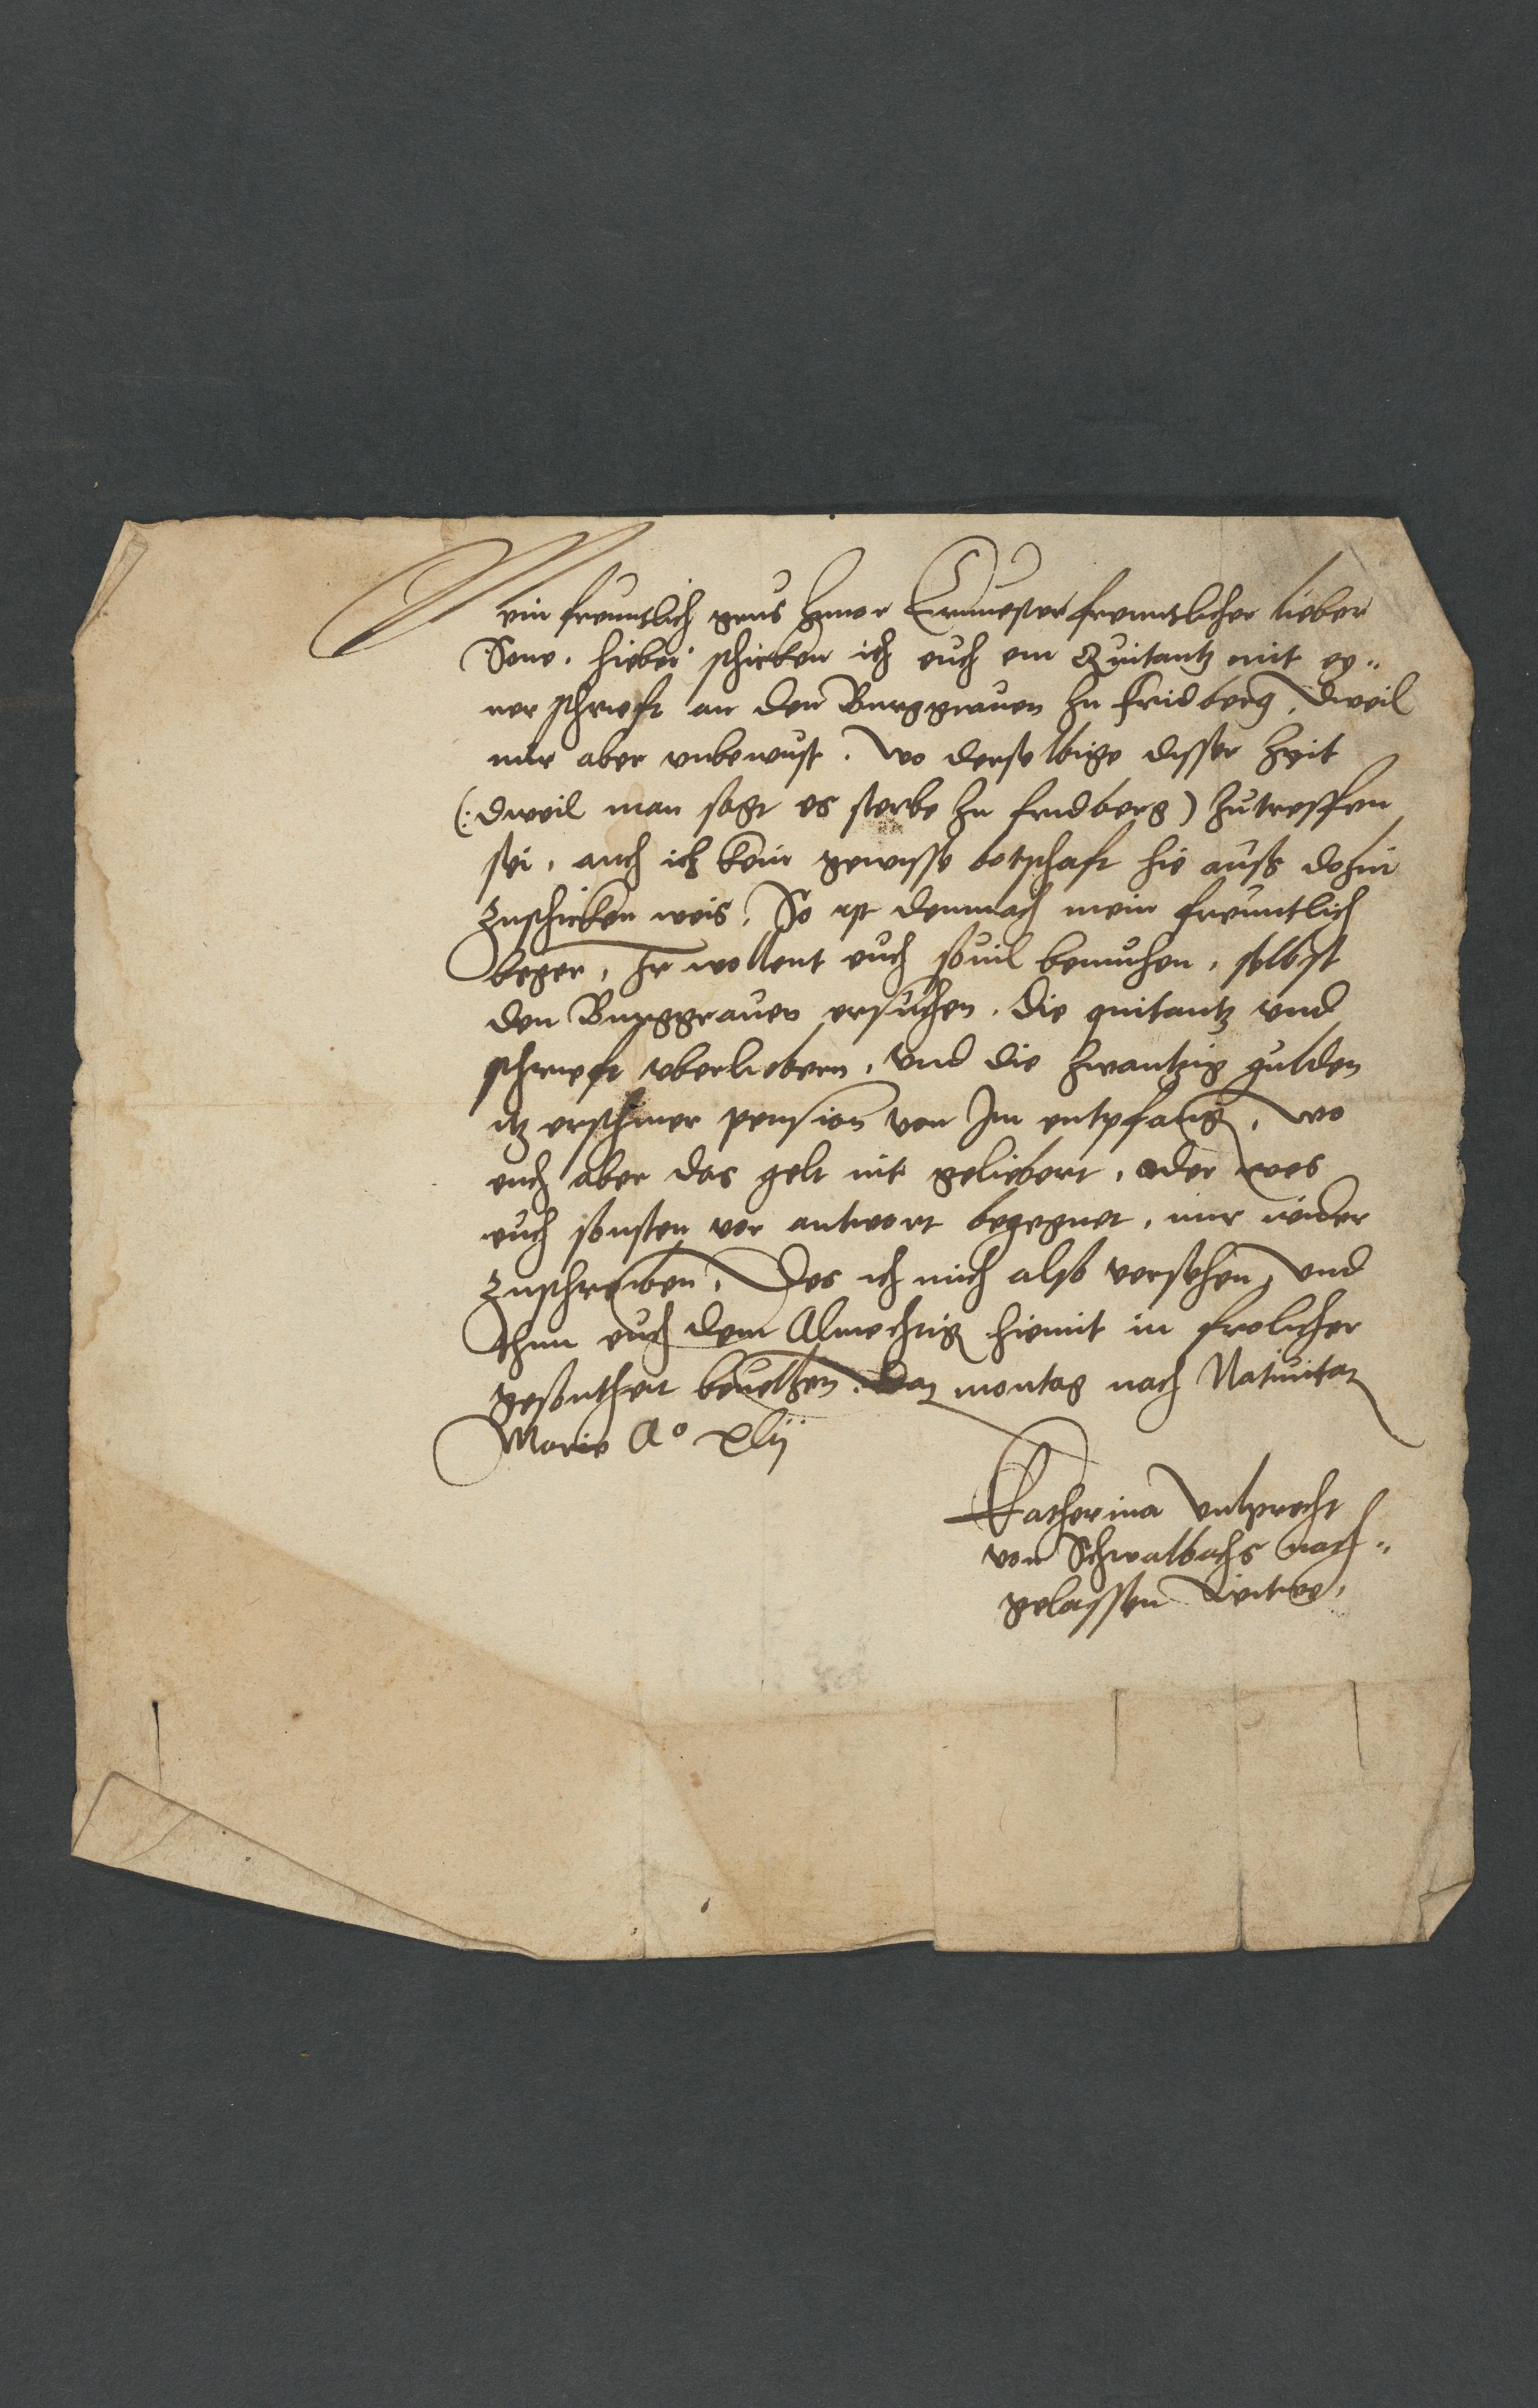 Mein freuntlich grus zuuor Ernuester freuntlicher lieber
Sone. hiebei schicken ich euch ein Quitantz mit ey„
ner schrieft an den Burggrauen zu Fridberg, Dweil
mir aber vnbewust. wo derselbige disser Zeit
(: dweil man sagt es sterbe zu fridberg) zutreffen
sei. auch ich kein gewisse botschaft hie auss dohin
zuschicken weis. So ist demnach mein freuntlich
beger. Ir wollent euch souil bemuhen. selbst
den Burggrauen ersuchen. die quitantz vnd
schrieft vberliebern. vnd die zwantzig gulden
itz erschiner pension von Im entpfang. wo
euch aber das gelt nit geliebert. oder wes
euch sonsten vor antwort begegnet. mir wider
zuschreiben. Des ich mich also versehen, vnd
thun euch dem Almechtig hiemit in frolicher
gesontheit beuelhen. Dat montag nach Natiuitat
Marie Ao xlij
Katherina Vulprecht
von Schwalbachs nach„
gelassen Witwe.